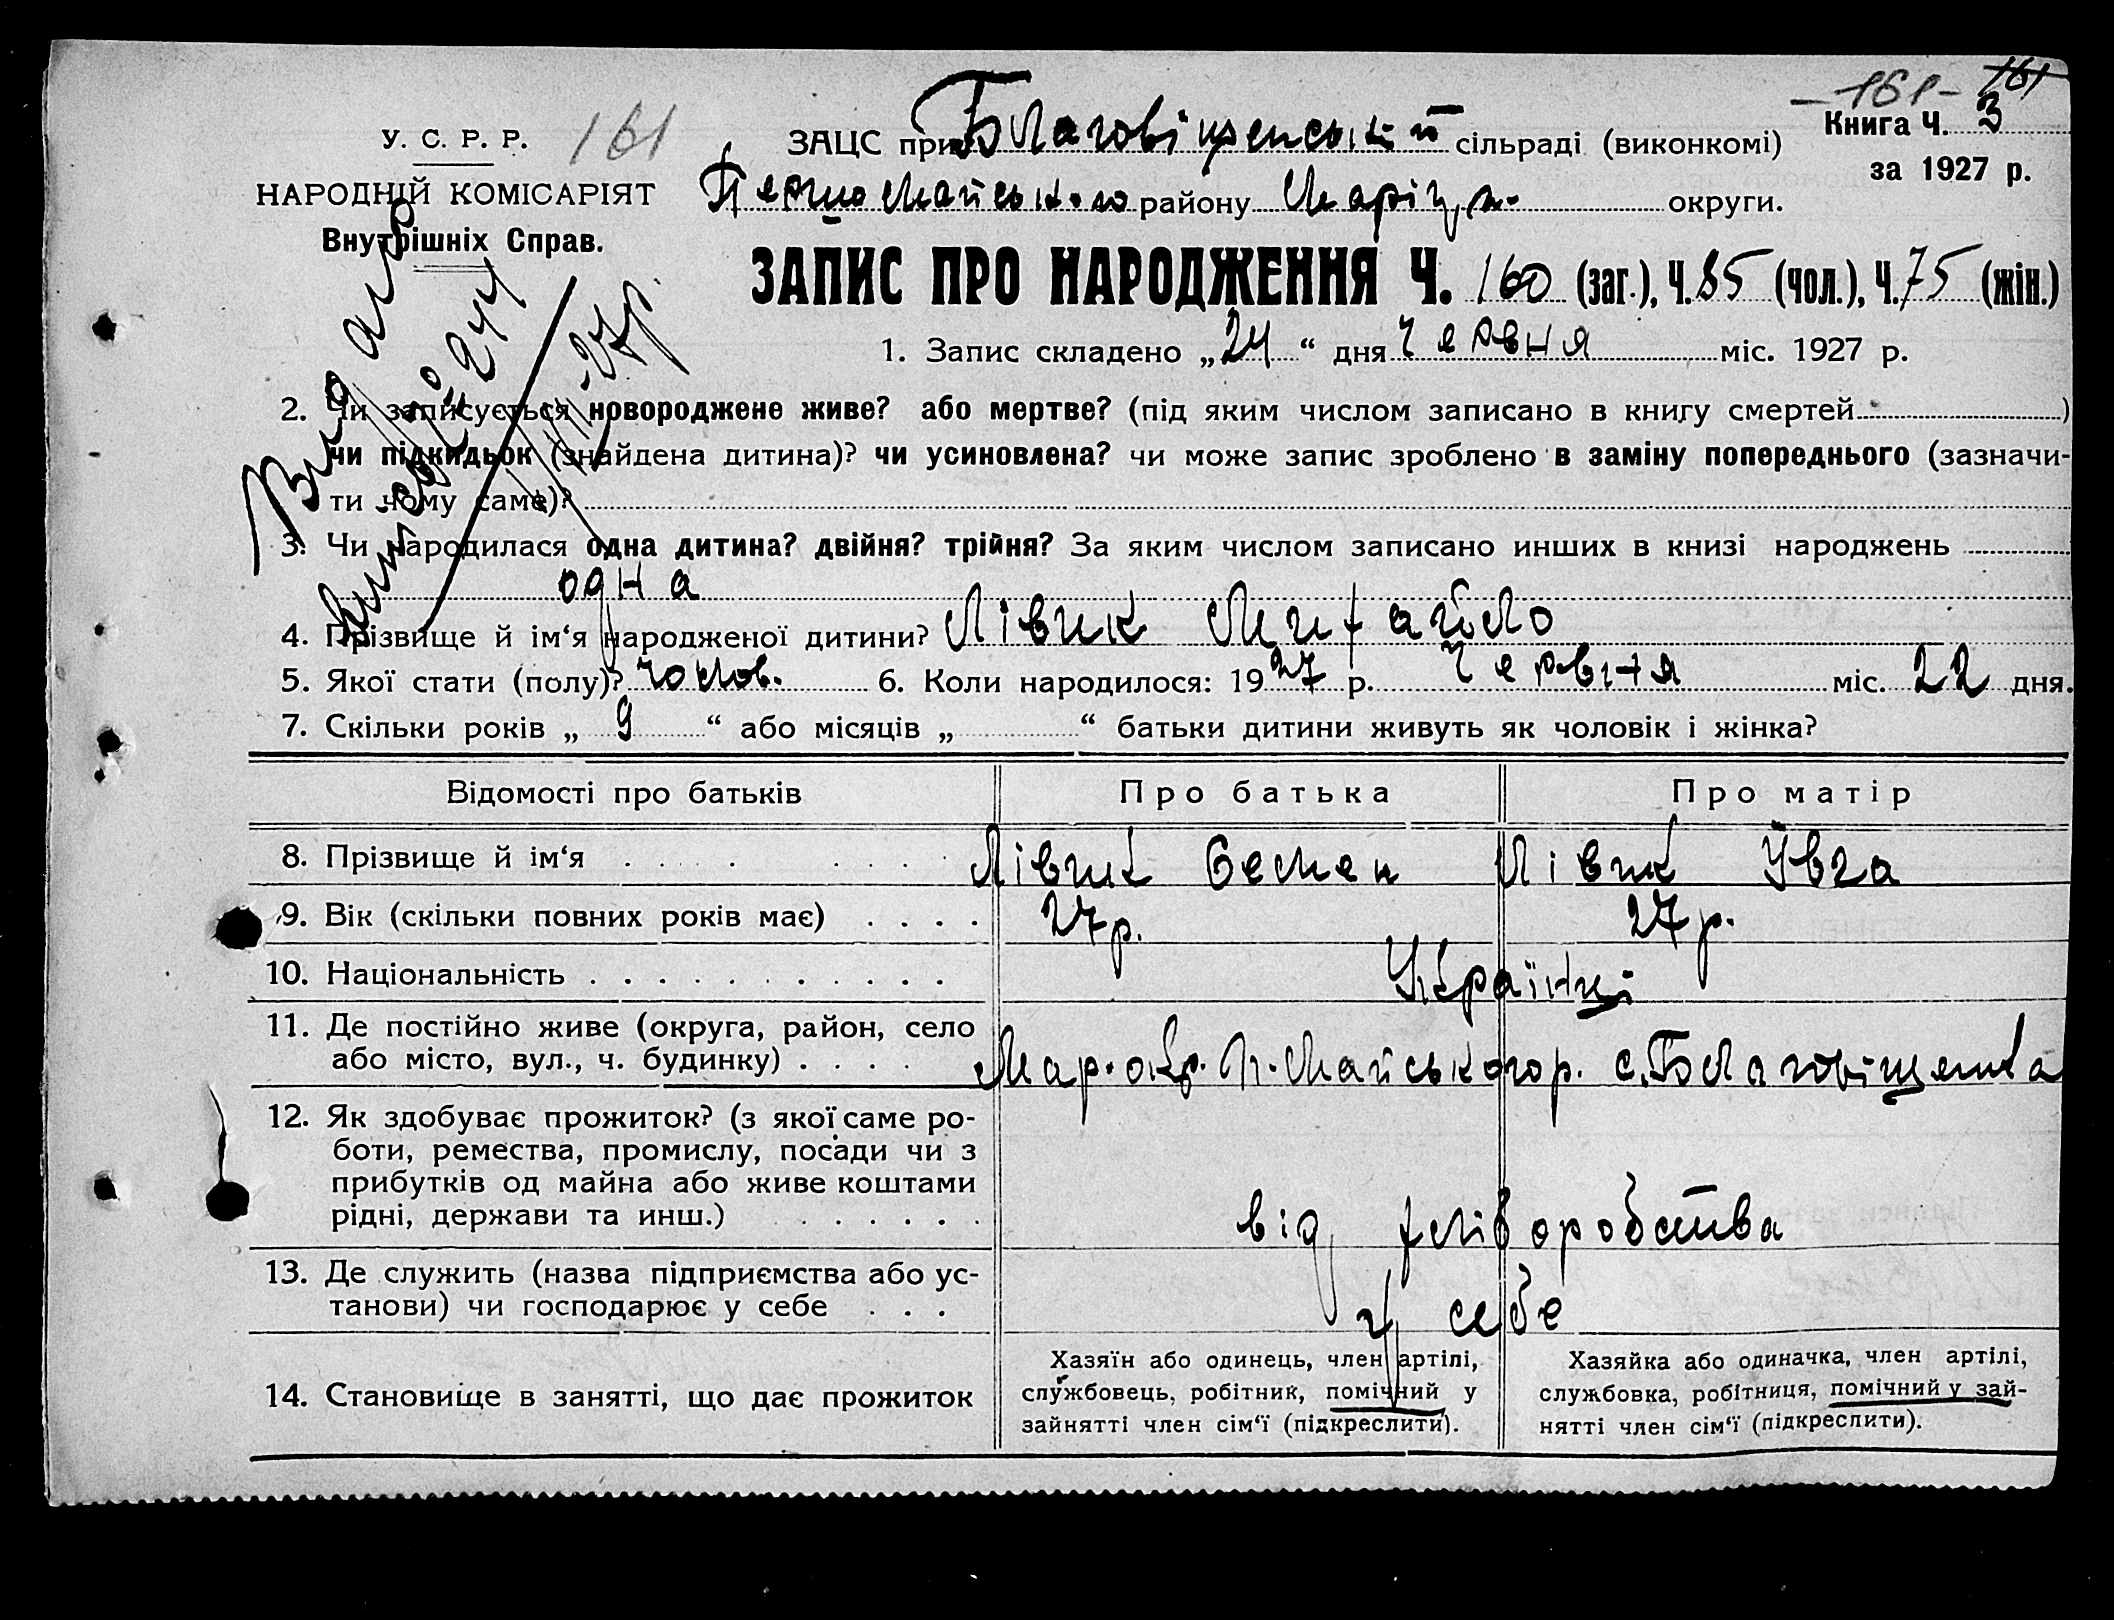 -161- 161
У. С. Р. Р. 161 ЗАЦС при Благовіщенській сільраді (виконкомі) Книга Ч. 3
за 1927 р.
НАРОДНІЙ КОМІСАРІЯТ Першомайського району Маріуп. округи.
Внутрішніх Справ.
ЗАПИС ПРО НАРОДЖЕННЯ Ч. 160 (заг.), Ч. 85 (чол.), Ч. 75 (жін.)
1. Запис складено „24“ дня червня міс. 1927 р.
Видано
2. Чи записується новороджене живе? або мертве? (під яким числом записано в книгу смертей )
чи підкидьок (знайдена дитина)? чи усиновлена? чи може запис зроблено в заміну попереднього (зазначи-
ти чому саме)?
3. Чи народилася одна дитина? двійня? трійня? За яким числом записано инших в книзі народжень
одна
4. Прізвище й ім‘я народженої дитини? Лівик Михайло
5. Якої стати (полу)? чолов. 6. Коли народилося: 1927 р. червня міс. 22 дня.
7. Скільки років „ 9 “ або місяців „ “ батьки дитини живуть як чоловік і жінка?
Відомості про батьків Про батька Про матір
8. Прізвище й ім‘я . . . . Лівик Семен Лівик Ївга
9. Вік (скільки повних років має) . . . . 27 р. 27 р.
10. Національність . . . . . . . . . . . Українці
11. Де постійно живе (округа, район, село
або місто, вул., ч. будинку) . . . . Мар. окр. П. Майського р. с. Благовіщенка
12. Як здобуває прожиток? (з якої саме ро-
боти, ремества, промислу, посади чи з
прибутків од майна або живе коштами
рідні, держави та инш.) . . . . . . від хліборобства
13. Де служить (назва підприємства або ус-
танови) чи господарює у себе . . . у себе
14. Становище в занятті, що дає прожиток
Хазяїн або одинець, член артілі,
службовець, робітник, помічний у
зайнятті член сім‘ї (підкреслити).
Хазяйка або одиначка, член артілі,
службовка, робітниця, помічний у зай-
нятті член сім‘ї (підкреслити).